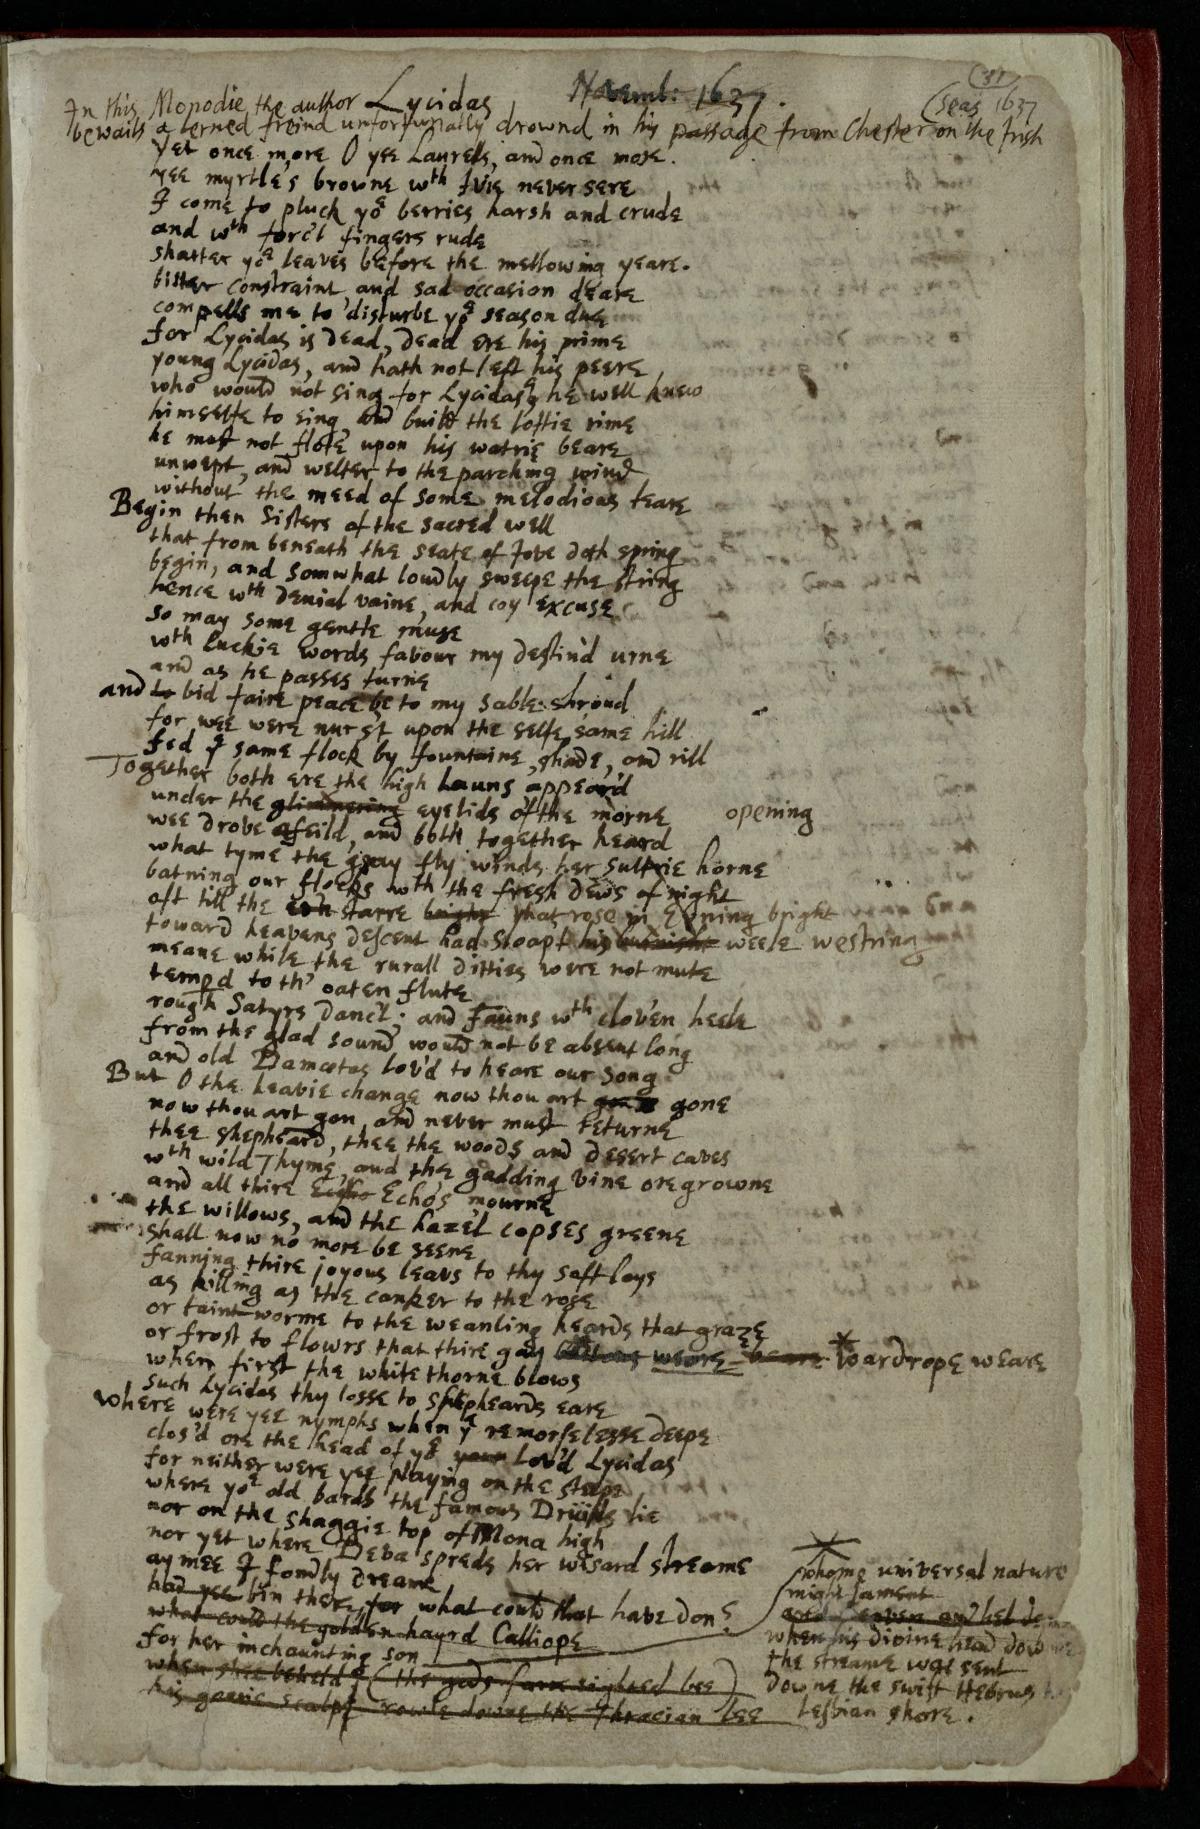 (31)
Lycidas Novemb: 1637.
In this Monodie the author
bewails a lerned freind unfortunatly drownd in his passage from Chester on the Irish
seas 1637
yet once more O yee Laurels, and once more.
yee myrtle's browne wth Ivie never sere
I come to pluck yor berries harsh and crude
and wth forc't fingers rude
shatter yor leaves before the mellowing yeare.
bitter constraint and sad occasion deare
compells me to disturbe yor season due
for Lycidas is dead, dead ere his prime
young Lycidas, and hath not left his peere
who would not sing for Lycidas? he well knew
himselfe to sing, and build the loftie rime
he must not flote upon his watrie beare
unwept, and welter to the parching wind
without the meed of some melodious teare
Begin then Sisters of the sacred well
that from beneath the seate of Jove doth spring
begin, and somwhat loudly sweepe the string
hence wth denial vaine, and coy excuse
so may some gentle muse
wth luckie words favour my destin'd urne
and as he passes turne
and to bid faire peace be to my sable shroud
for wee were nurst upon the selfe same hill
fed ye same flock by fountaine, shade, and rill
Together both ere the high launs appear'd
under the glimmering eyelids of the morne opening
wee drove afeild, and both together heard
what tyme the gray fly winds her sultrie horne
batning our flocks wth the fresh dews of night
oft till the ev'n starre bright that rose in Evning bright
toward heavens descent had sloapt his burnisht weele westring
meane while the rurall ditties were not mute
temperd to th' oaten flute
rough Satyrs danc't, and Fauns wth clov'en heele
from the glad sound would not be absent long
and old Damœtas lov'd to heare our song
But O the heavie change now thou art gone
now thou art gon, and never must returne
thee shepheard, thee the woods and desert caves
wth wild Thyme, and the gadding vine oregrowne
and all thire Echo Echo's mourne
the willows, and the hazel copses greene
shall now no more be seene
fanning thire joyous leavs to thy soft lays
as killing as the canker to the rose
or taint-worme to the weanling heards that graze
or frost to flowrs that thire gay buttons weare beare wardrope weare
when first the white thorne blows
such Lycidas thy losse to shepheards eare
where were yee nymphs when ye remorselesse deepe
clos'd ore the head of yor your Lov'd Lycidas
for neither were yee playing on the steepe
where yor old bards the famous Druids lie
nor on the shaggie top of Mona high
nor yet where Deva spreds her wisard streame
ay mee I fondly dreame
had yee bin there, for what could that have don?
what could the golden hayrd Calliope
for her inchaunting son
when shee beheld (the gods farre sighted bee)
his goarie scalpe rowle downe the Thracian lee
whome universal nature
might lament
and heaven and hel
when his divine head downe
the streame was sent
downe the swift Hebrus
Lesbian shore.